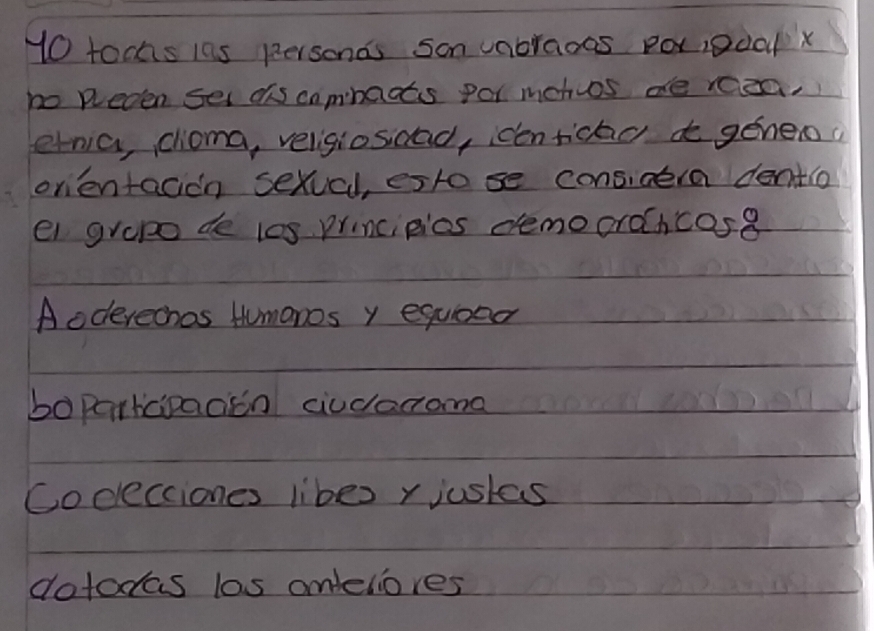 10 todas las personas son valoradas por igual y
no pueden ser discriminadas por motivos de raza,
etnia, idioma, religiosidad, identidad de género
orientación sexual, esto se considera dentro
el grupo de los principios democráticos:
A. derechos Humanos y equidad
b. Participación ciudadana
C. elecciones libes y justas
d. todas las anteriores